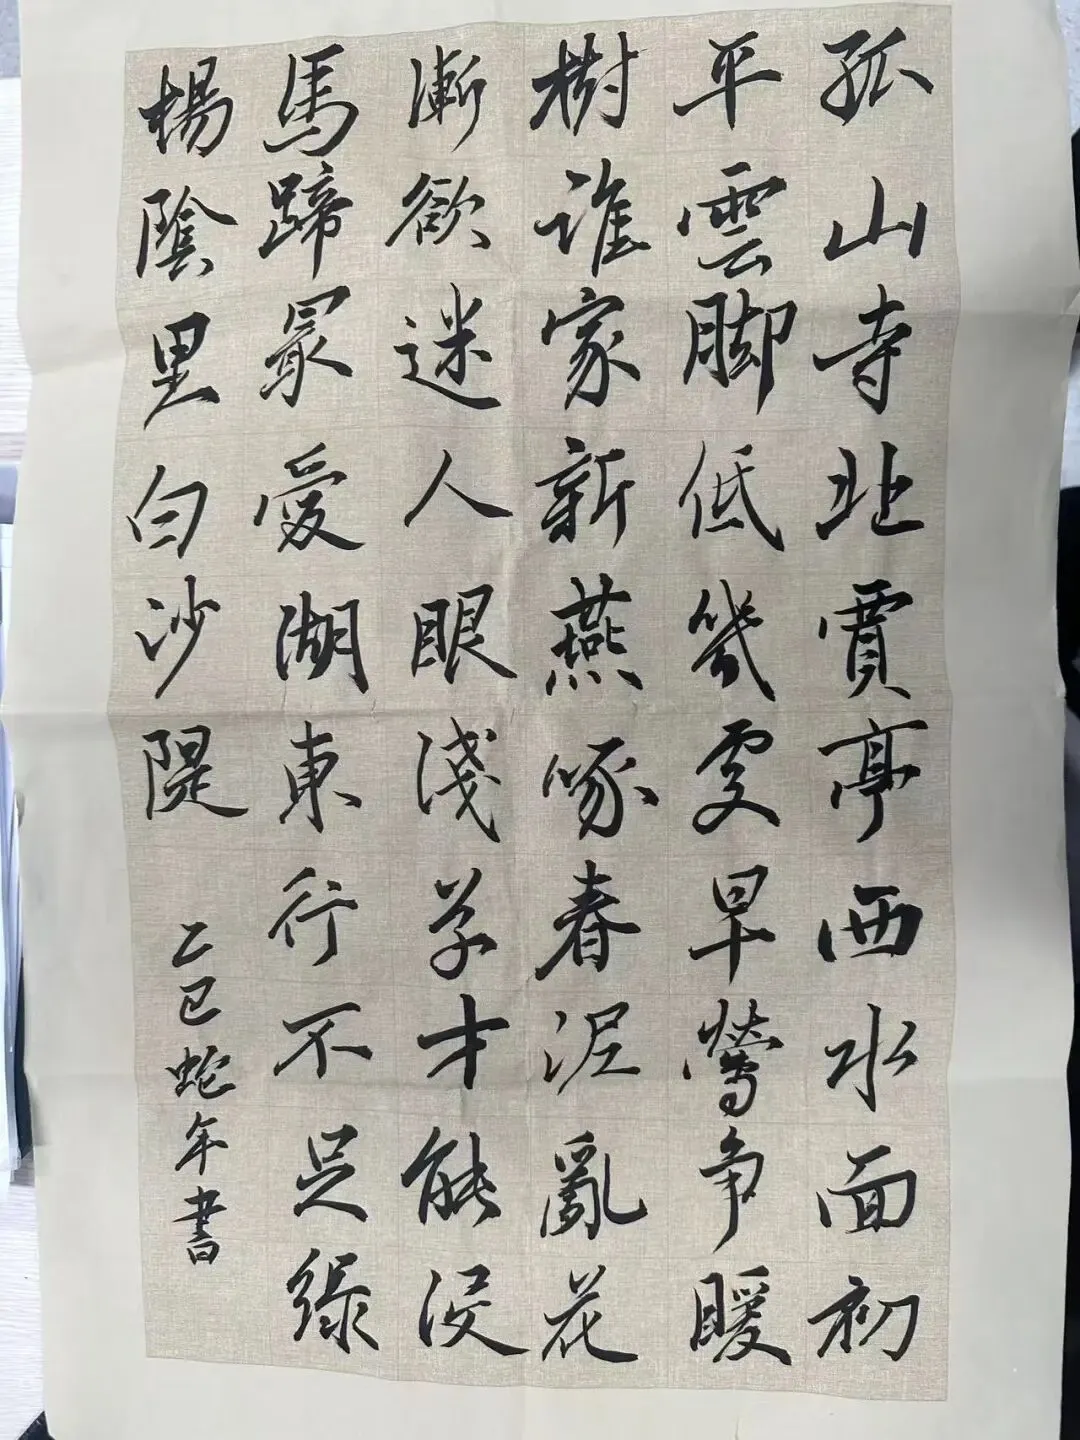 孤山寺北賈亭西水面初
平雲脚低幾處早鶯争暖
樹誰家新燕啄春泥亂花
漸欲迷人眼淺草才能没
馬蹄最愛湖東行不足綠
楊陰里白沙隄
乙巳蛇年書